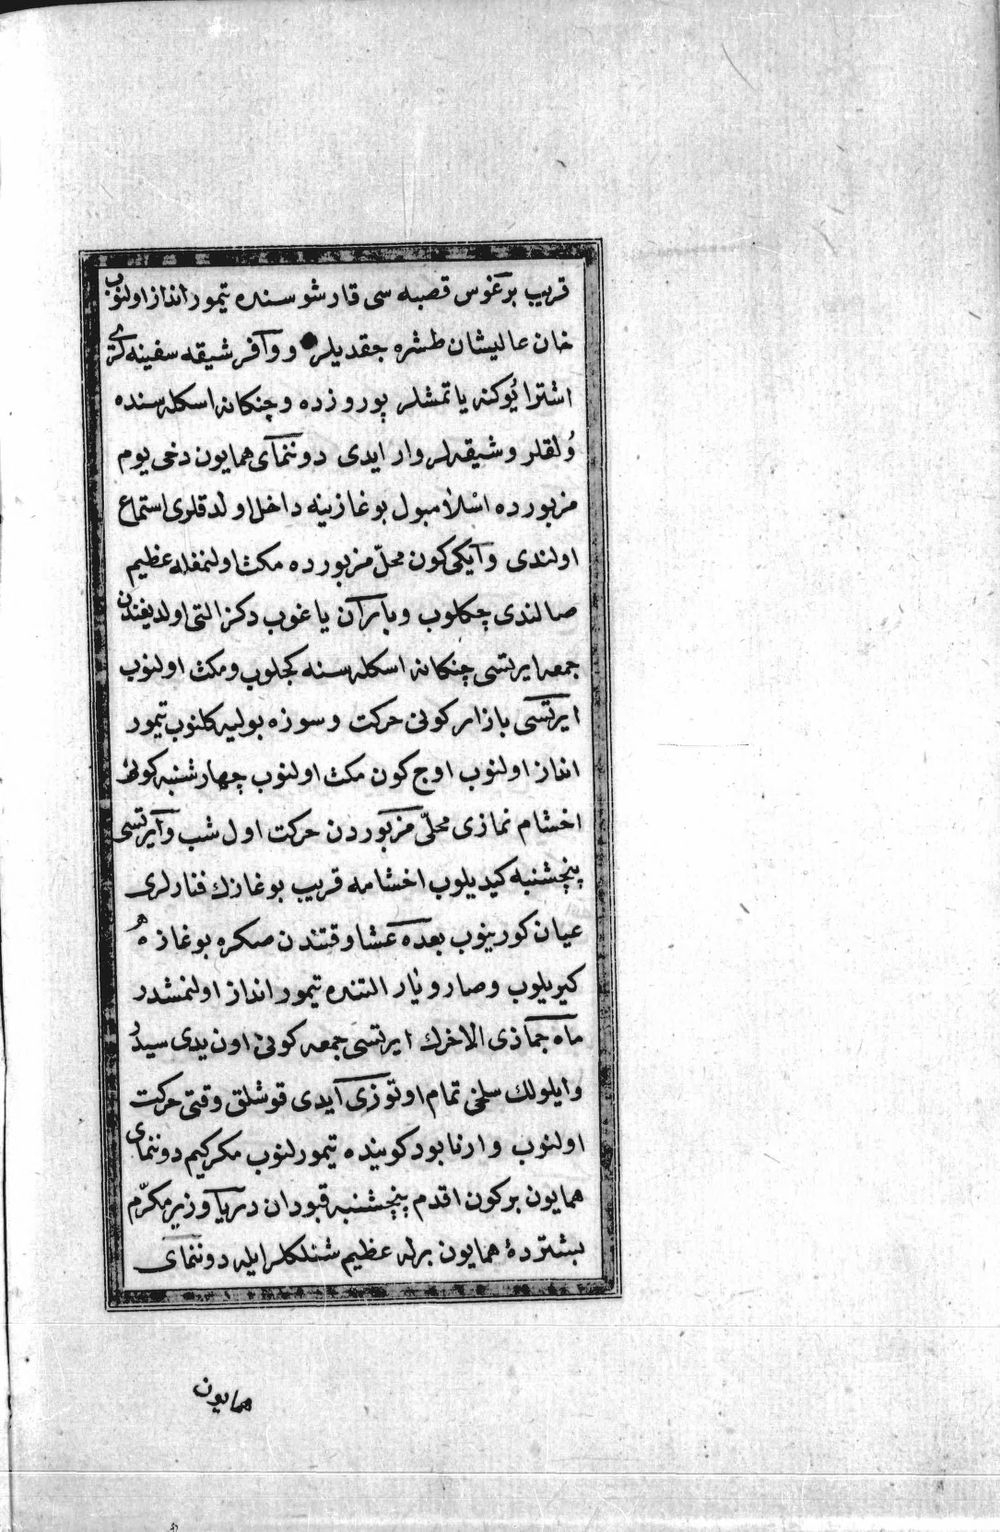 قريب برغوس قصبه سی قارشو سنده تیمور انداز اولنوب
خان عالیشان طشره جقدیلر و وآفر شیقه سفینه کزی
اشترا یوکنه یاتمشلر پوروزده و چنکانه اسکله سنده
ولقلر و شیقه لر وار ایدی دوننمآی همایون دخی یوم
مزبورده اسلامبول بوغازینه داخل اولدقلری استماع
اولندی و آیکی کون محلّ مزبورده مکث اولنمغله عظیم
صالندی چکلوب و باران یاغوب دکز التی اولدیغندن
جمعه ایرتسی چنکانه اسکله سنه کجلوب و مکث اولنوب
ایرتسی بازار کونی حرکت و سوزه بولیه کلنوب تیمور
انداز اولنوب اوج کون مکث اولنوب چهارشنبه کونی
اخشام نمازی محلّی مزبوردن حرکت اول شب و آیرتسی
پنچشنبه کیدیلوب اخشامه قریب بوغازك فنارلری
عیان کورینوب بعده عشا وقتندن صکره بوغازه
کیریلوب و صارویار التنده تیمور انداز اولنمشدر
ماه جماذی الاخرك ایرتسی جمعه کونی اون یدی سیدر
و ایلولك سلخی تمام اوتوزی آیدی قوشلق وقتی حرکت
اولنوب و ارنابود کوینده تیمورلنوب مکرکیم دوننمای
همایون بر کون اقدم پنچشنبه قبودان دریا و زیر مکرّم
بشتردۀ همایون برله عظیم شنلکلر ایله دوننمای
همایون